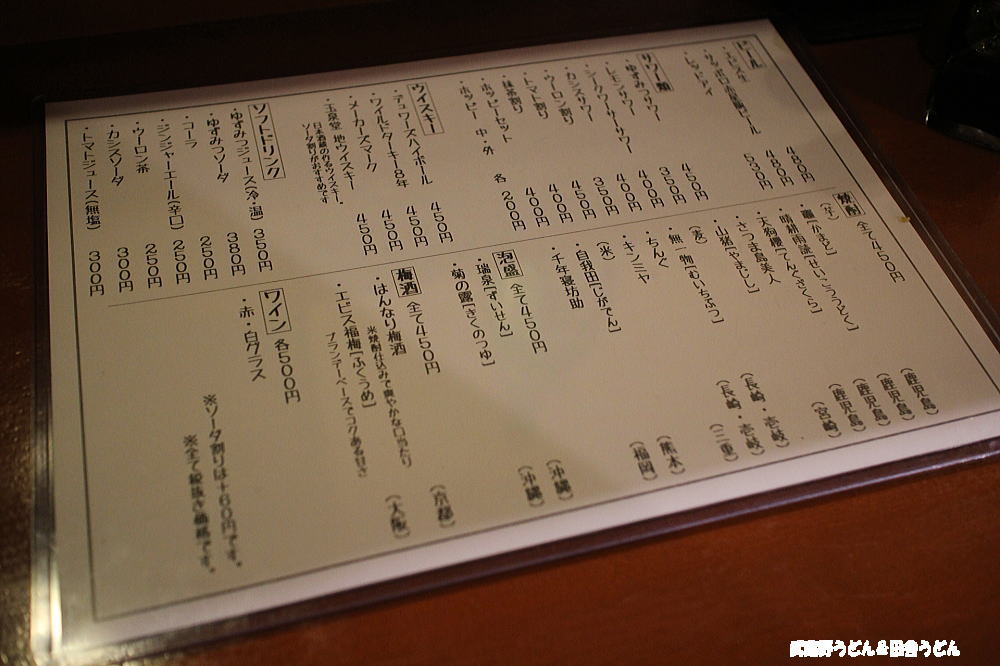 ビール
・エビス生 480円
・サッポロ赤星瓶ビール 480円
・レッドアイ 530円
サワー類
・ゆずみつサワー 450円
・レモンサワー 350円
・シークワーサーサワー 400円
・カシスサワー 400円
・ウーロン割り 350円
・トマト割り 450円
・抹茶割り 400円
・ホッピーセット 400円
・ホッピー 中・外 各200円
ウイスキー
・デュワーズハイボール 450円
・ワイルドターキー8年 450円
・メーカーズマーク 450円
・玉泉堂 地ウイスキー 450円
日本酒蔵の作るウイスキー。
ソーダ割りがおすすめです。
ソフトドリンク
・ゆずみつジュース(冷・温) 350円
・ゆずみつソーダ 380円
・コーラ 250円
・ジンジャーエール(辛口) 250円
・ウーロン茶 250円
・カシスソーダ 300円
・トマトジュース(無塩) 300円
焼酎 全て450円
(芋)
・竈[かまど] (鹿児島)
・晴耕雨読[せいこううどく] (鹿児島)
・天狗櫻[てんぐざくら] (鹿児島)
・さつま島美人 (鹿児島)
・山猪[やまじし] (宮崎)
(麦)
・無一物[むいちぶつ] (長崎・壱岐)
・ちんぐ (長崎・壱岐)
・キンミヤ (三重)
(米)
・自我田[じがでん] (熊本)
・千年寝坊助 (福岡)
泡盛 全て450円
・瑞泉[ずいせん] (沖縄)
・菊の露[きくのつゆ] (沖縄)
梅酒 全て450円
・はんなり梅酒 (京都)
米焼酎仕込みで爽やかな口当たり
・エビス福梅[ふくうめ] (大阪)
ブランデーベースでコクある甘さ
ワイン 各500円
・赤・白グラス
※ソーダ割りは+80円です。
※全て税抜き価格です。
武蔵野うどん&田舎うどん